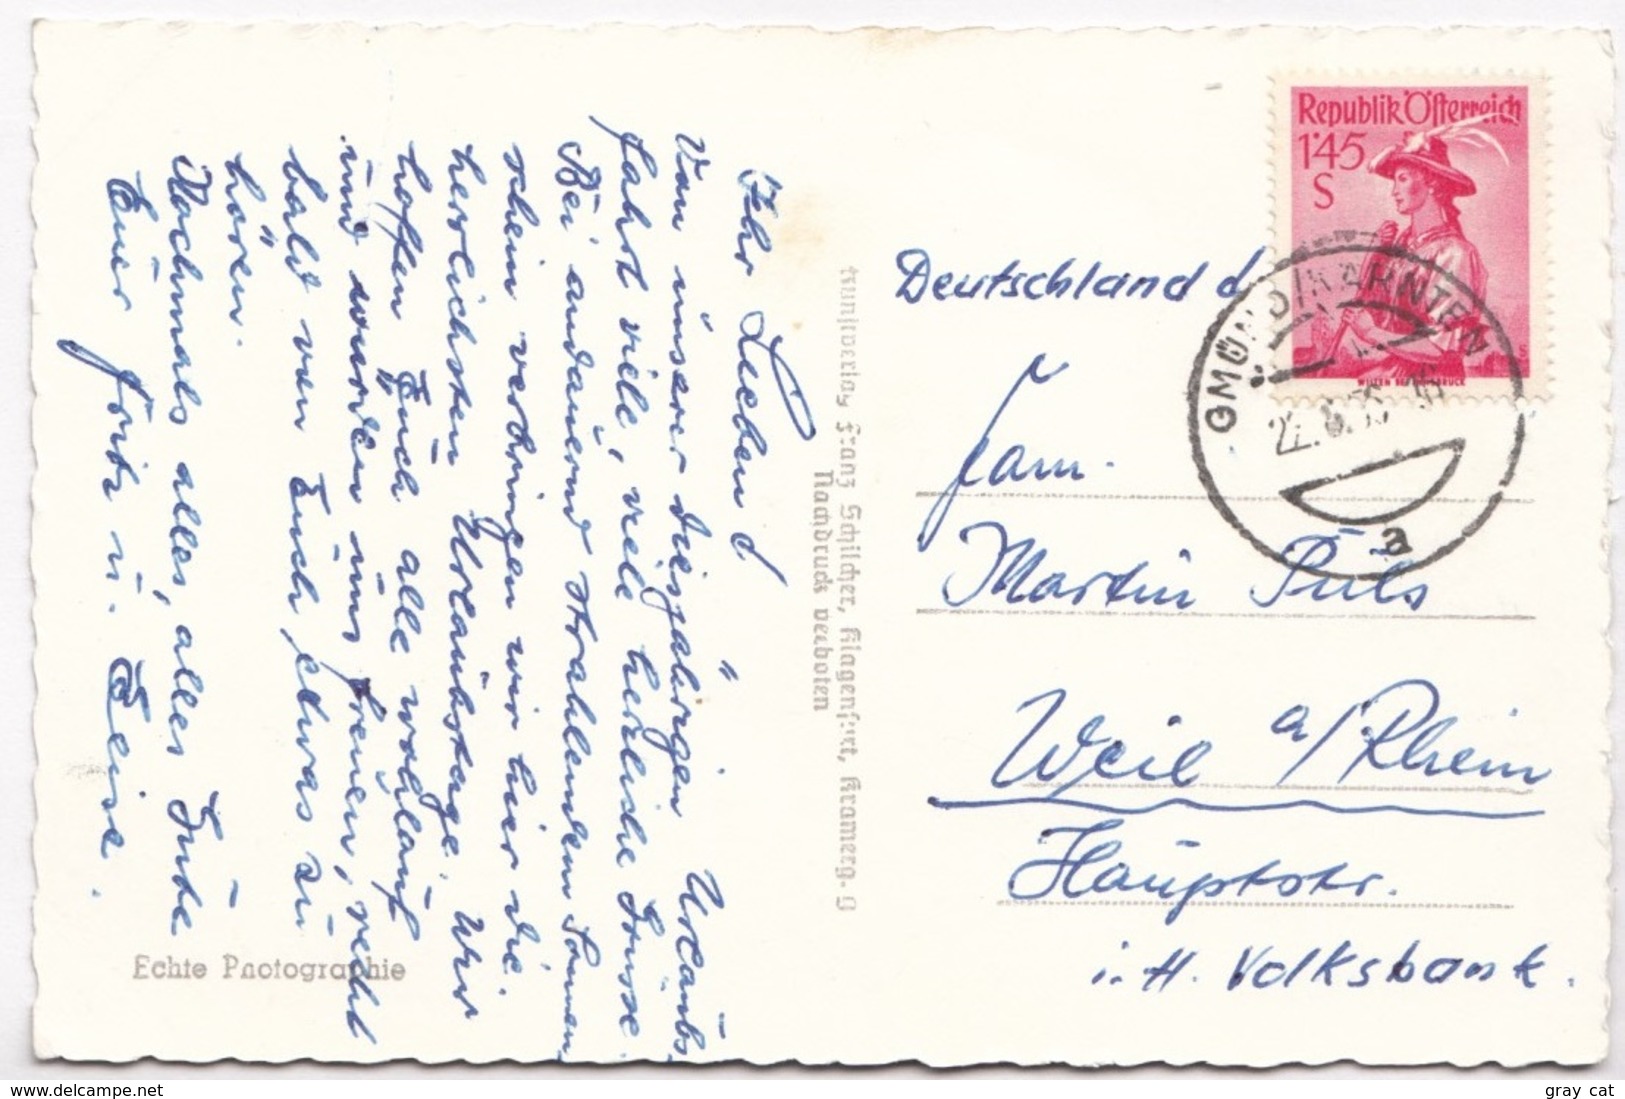 Ihr Lieben!
Von unserer diesjährigen Urlaubs-
fahrt viele, viele herzliche Grüsse.
Bei andauernd strahlendem Sonnen-
schein verbringen wir hier die
herrlichsten Urlaubstage. Wir
hoffen Euch alle wohlauf
und würden uns freuen, recht
bald von Euch etwas zu
hören.
Nochmals alles, alles Gute
Euer Fritz u. Elise.
Echte Photographie
Kunstverlag Franz Schilcher, Klagenfurt, Kramerg. 9
Nachdruck verboten
Republik Österreich
1'45
S
GMÜND/KÄRNTEN
a
Deutschland
Fam.
Martin Puls
Weil a/Rhein
Hauptstr.
i. H. Volksbank.
delcampe.net
gray cat